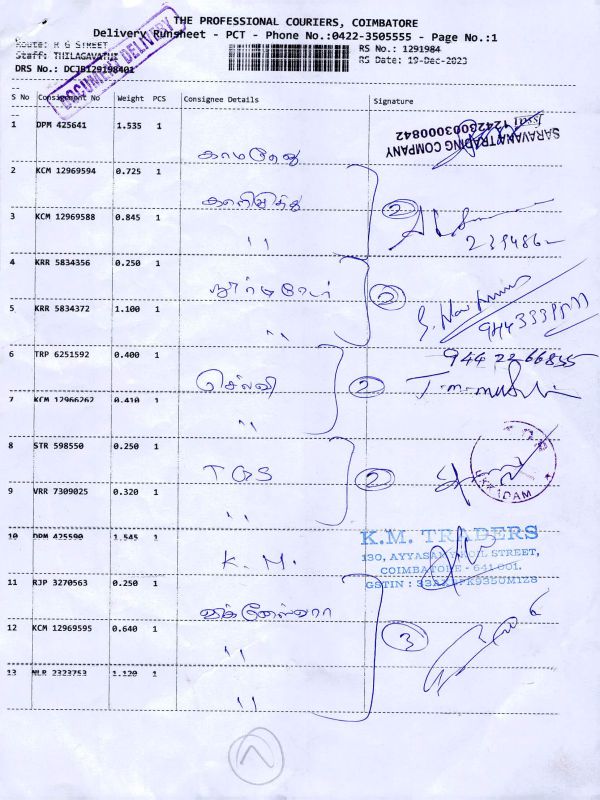 THE PROFESSIONAL COURIERS, COIMBATORE
Delivery Runsheet - PCT - Phone No.:0422-3505555 - Page No.:1
Route: R G STREET
Staff: THILAGAVATHI
DRS No.: DCJB129198401
RS No.: 1291984
RS Date: 19-Dec-2023
DOCUMENT DELIVERY
S No Consignment No Weight PCS Consignee Details Signature
1 DPM 425641 1.535 1 காமதேனு
SARAVANA TRADING COMPANY
2 KCM 12969594 0.725 1
3 KCM 12969588 0.845 1 "
2
239486
4 KRR 5834356 0.250 1
5 KRR 5834372 1.100 1 "
2
6 TRP 6251592 0.400 1 செல்வி
7 KCM 12966262 0.410 1 "
2
944 22 66855
8 STR 598550 0.250 1 TGS
9 VRR 7309025 0.320 1 "
2
10 DPM 425590 1.545 1 K. M.
K.M. TRADERS
COIMBATORE - 641 001.
11 RJP 3270563 0.250 1 விக்னேஸ்வரா
12 KCM 12969595 0.640 1 "
13 NLR 2323753 1.120 1 "
3